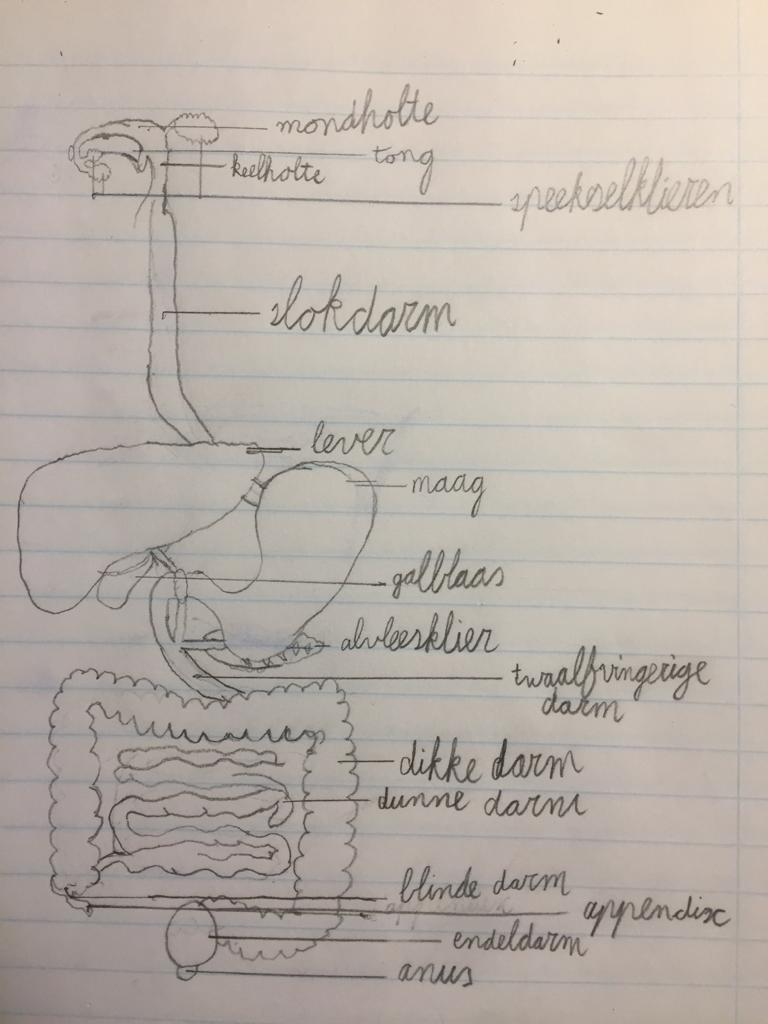 mondholte
tong
keelholte
speekselklieren
slokdarm
lever
maag
galblaas
alvleesklier
twaalfvingerige
darm
dikke darm
dunne darm
blinde darm
appendix
endeldarm
anus